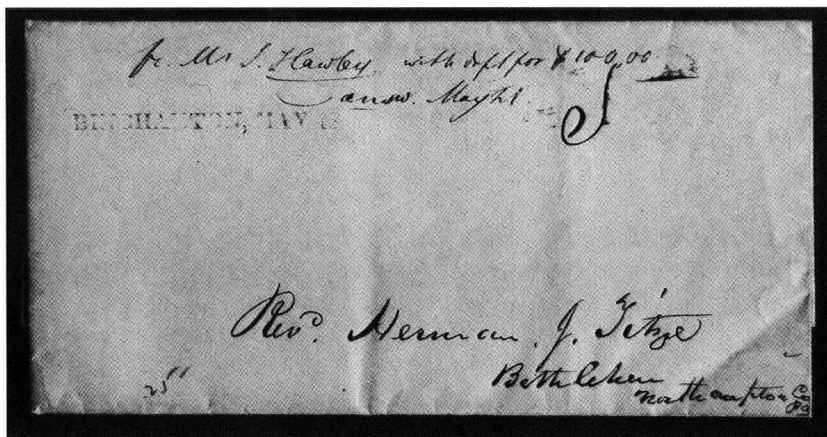 fr. Mr J. Hawley with dft for $100.00
answ. May
BINGHAMTON, MAY
Revd. Herman. J. Titze
Bethlehem
Northampton Co
Pa
25